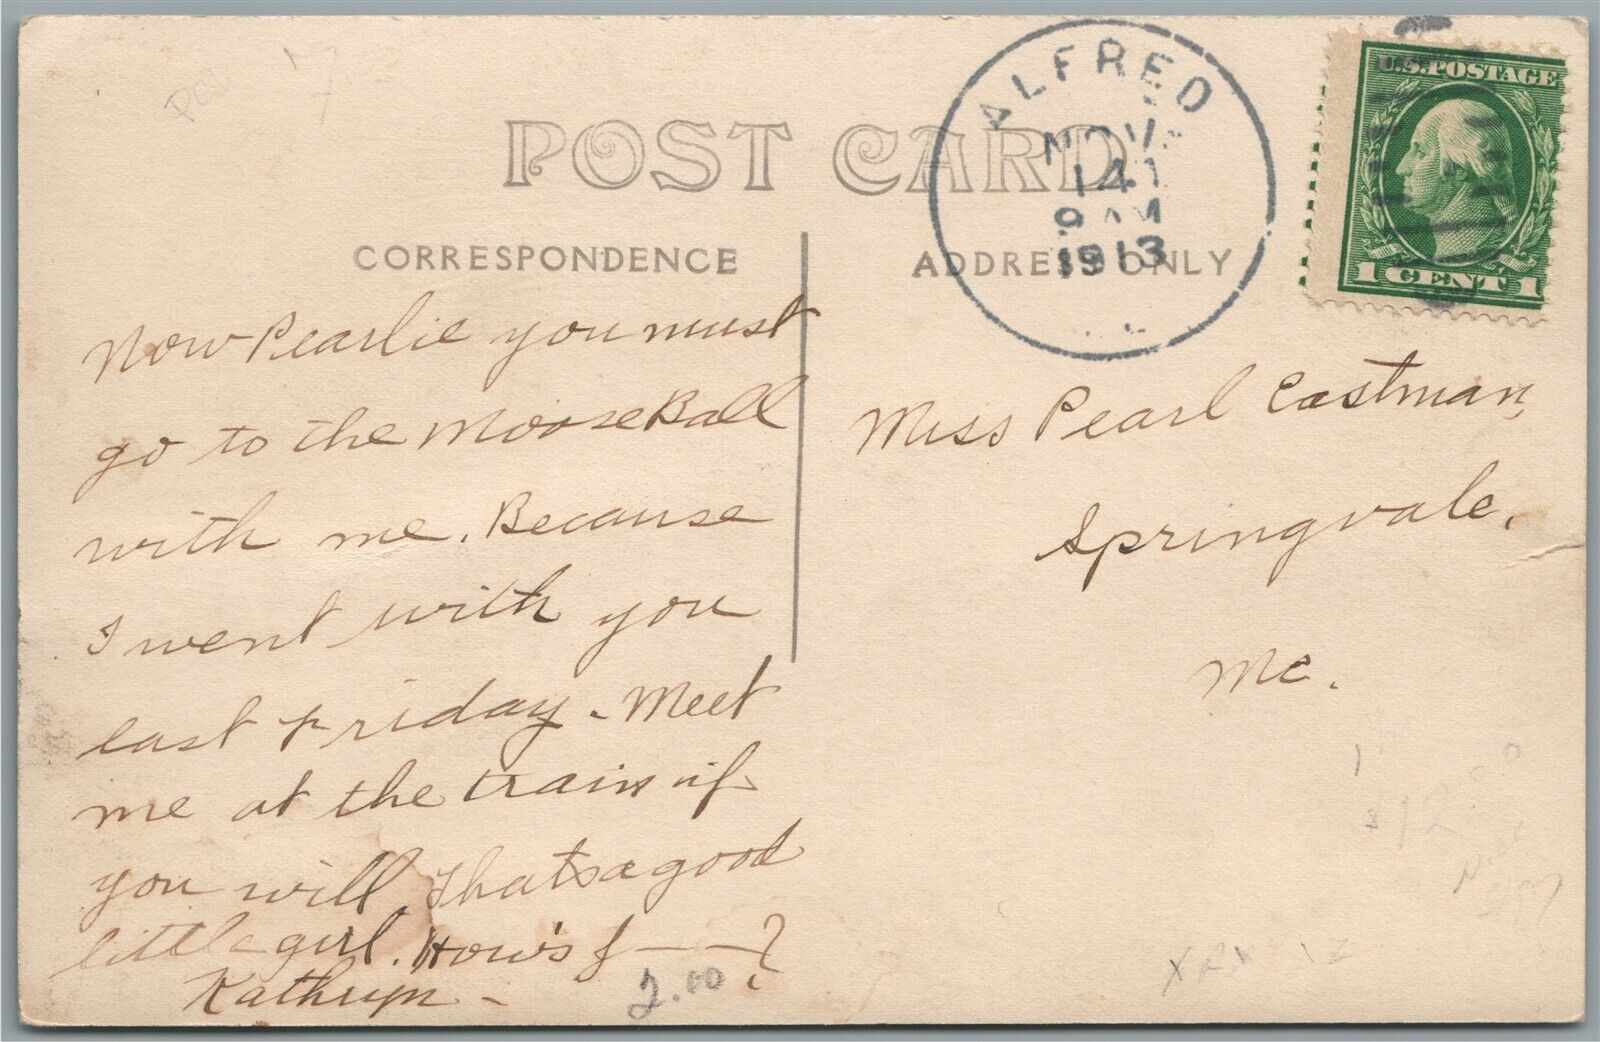 POST CARD
CORRESPONDENCE
Now Pearlie you must
go to the Moose Ball
with me. Because
I went with you
last Friday. Meet
me at the train if
you will. Thats a good
little girl. How's J — — ?
Kathryn -
2.00
ADDRESS ONLY
ALFRED
NOV
14
9 AM
1913
U.S. POSTAGE
1 CENT 1
Miss Pearl Eastman,
Springvale,
Me.